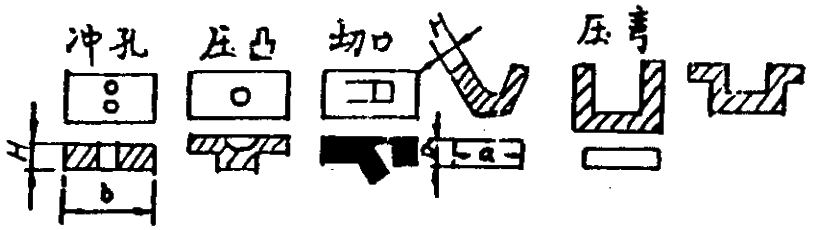 冲孔
压凸
切口
r
压弯
H
b
a